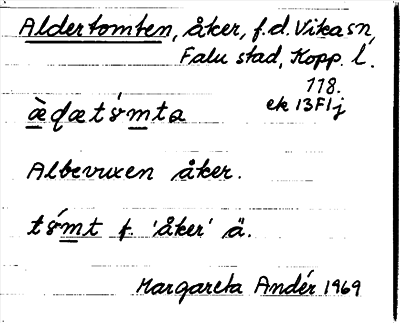 Aldertomten, åker, f.d. Vika sn,
Falu stad, Kopp. l.
118.
ek 13F1j
Albevuxen åker.
f. 'åker' ä.
Margareta Andér 1969